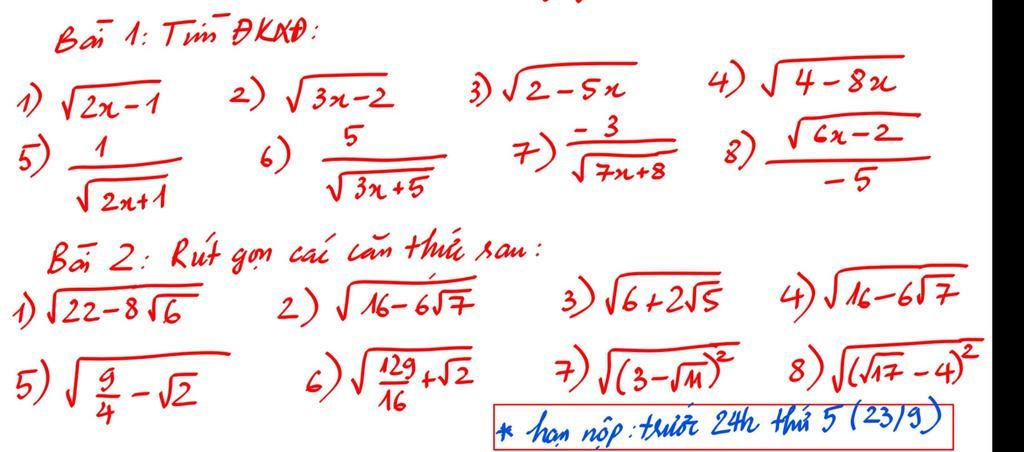 Bài 1: Tìm ĐKXĐ:
1) √(2x-1) 2) √(3x-2) 3) √(2-5x) 4) √(4-8x)
5) 1/√(2x+1) 6) 5/√(3x+5) 7) -3/√(7x+8) 8) √(6x-2)/-5
Bài 2: Rút gọn các căn thức sau:
1) √(22-8√6) 2) √(16-6√7) 3) √(6+2√5) 4) √(16-6√7)
5) √(9/4-√2) 6) √(129/16+√2) 7) √((3-√11)²) 8) √((√17-4)²)
* hạn nộp: trước 24h thứ 5 (23/9)